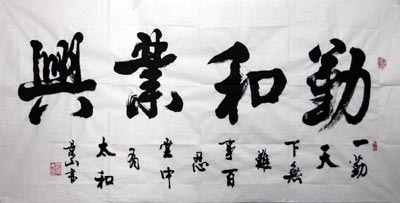 勤和業興
一勤
天
下無
難
事百
忍
堂中
有
太和
山书